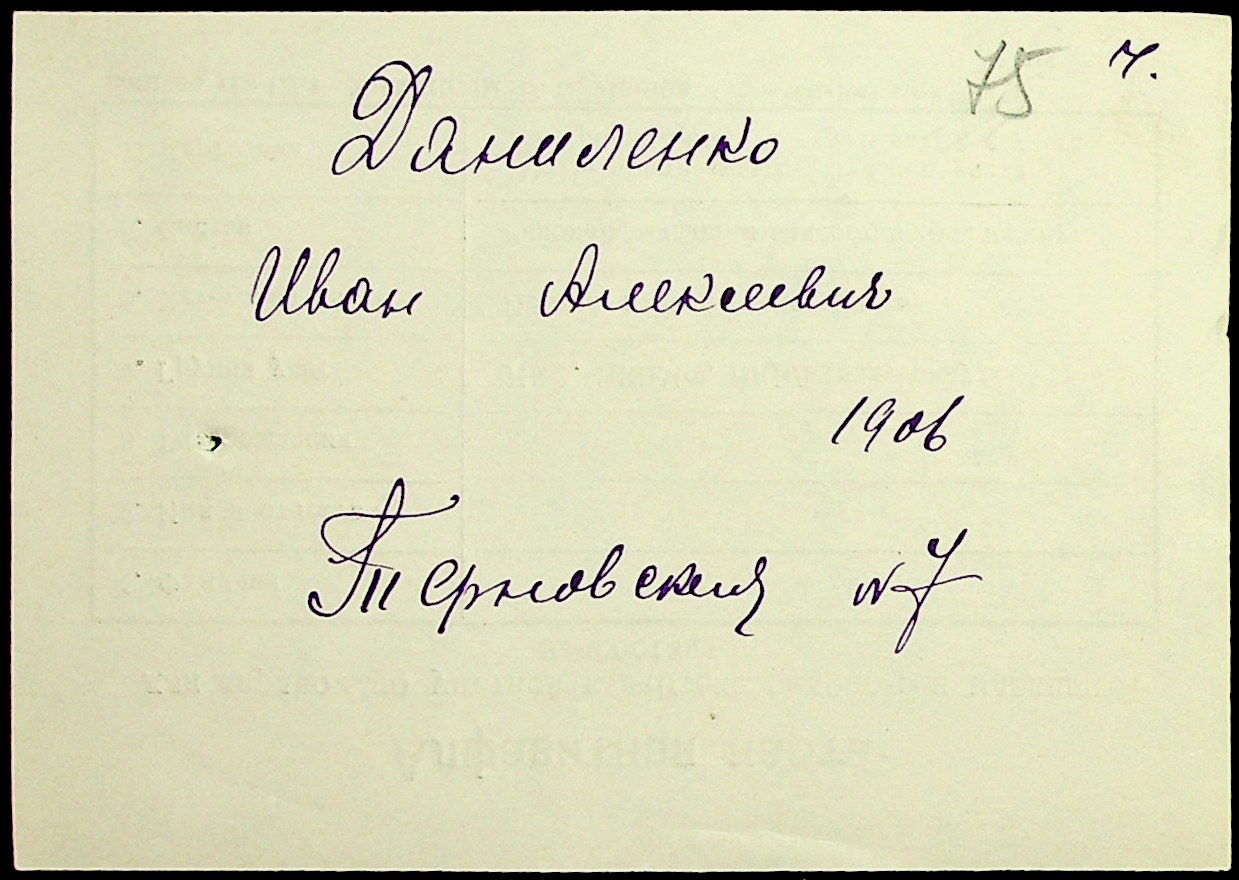 75 ч.
Даниленко
Иван Алексеевич
1906
Терновская №7